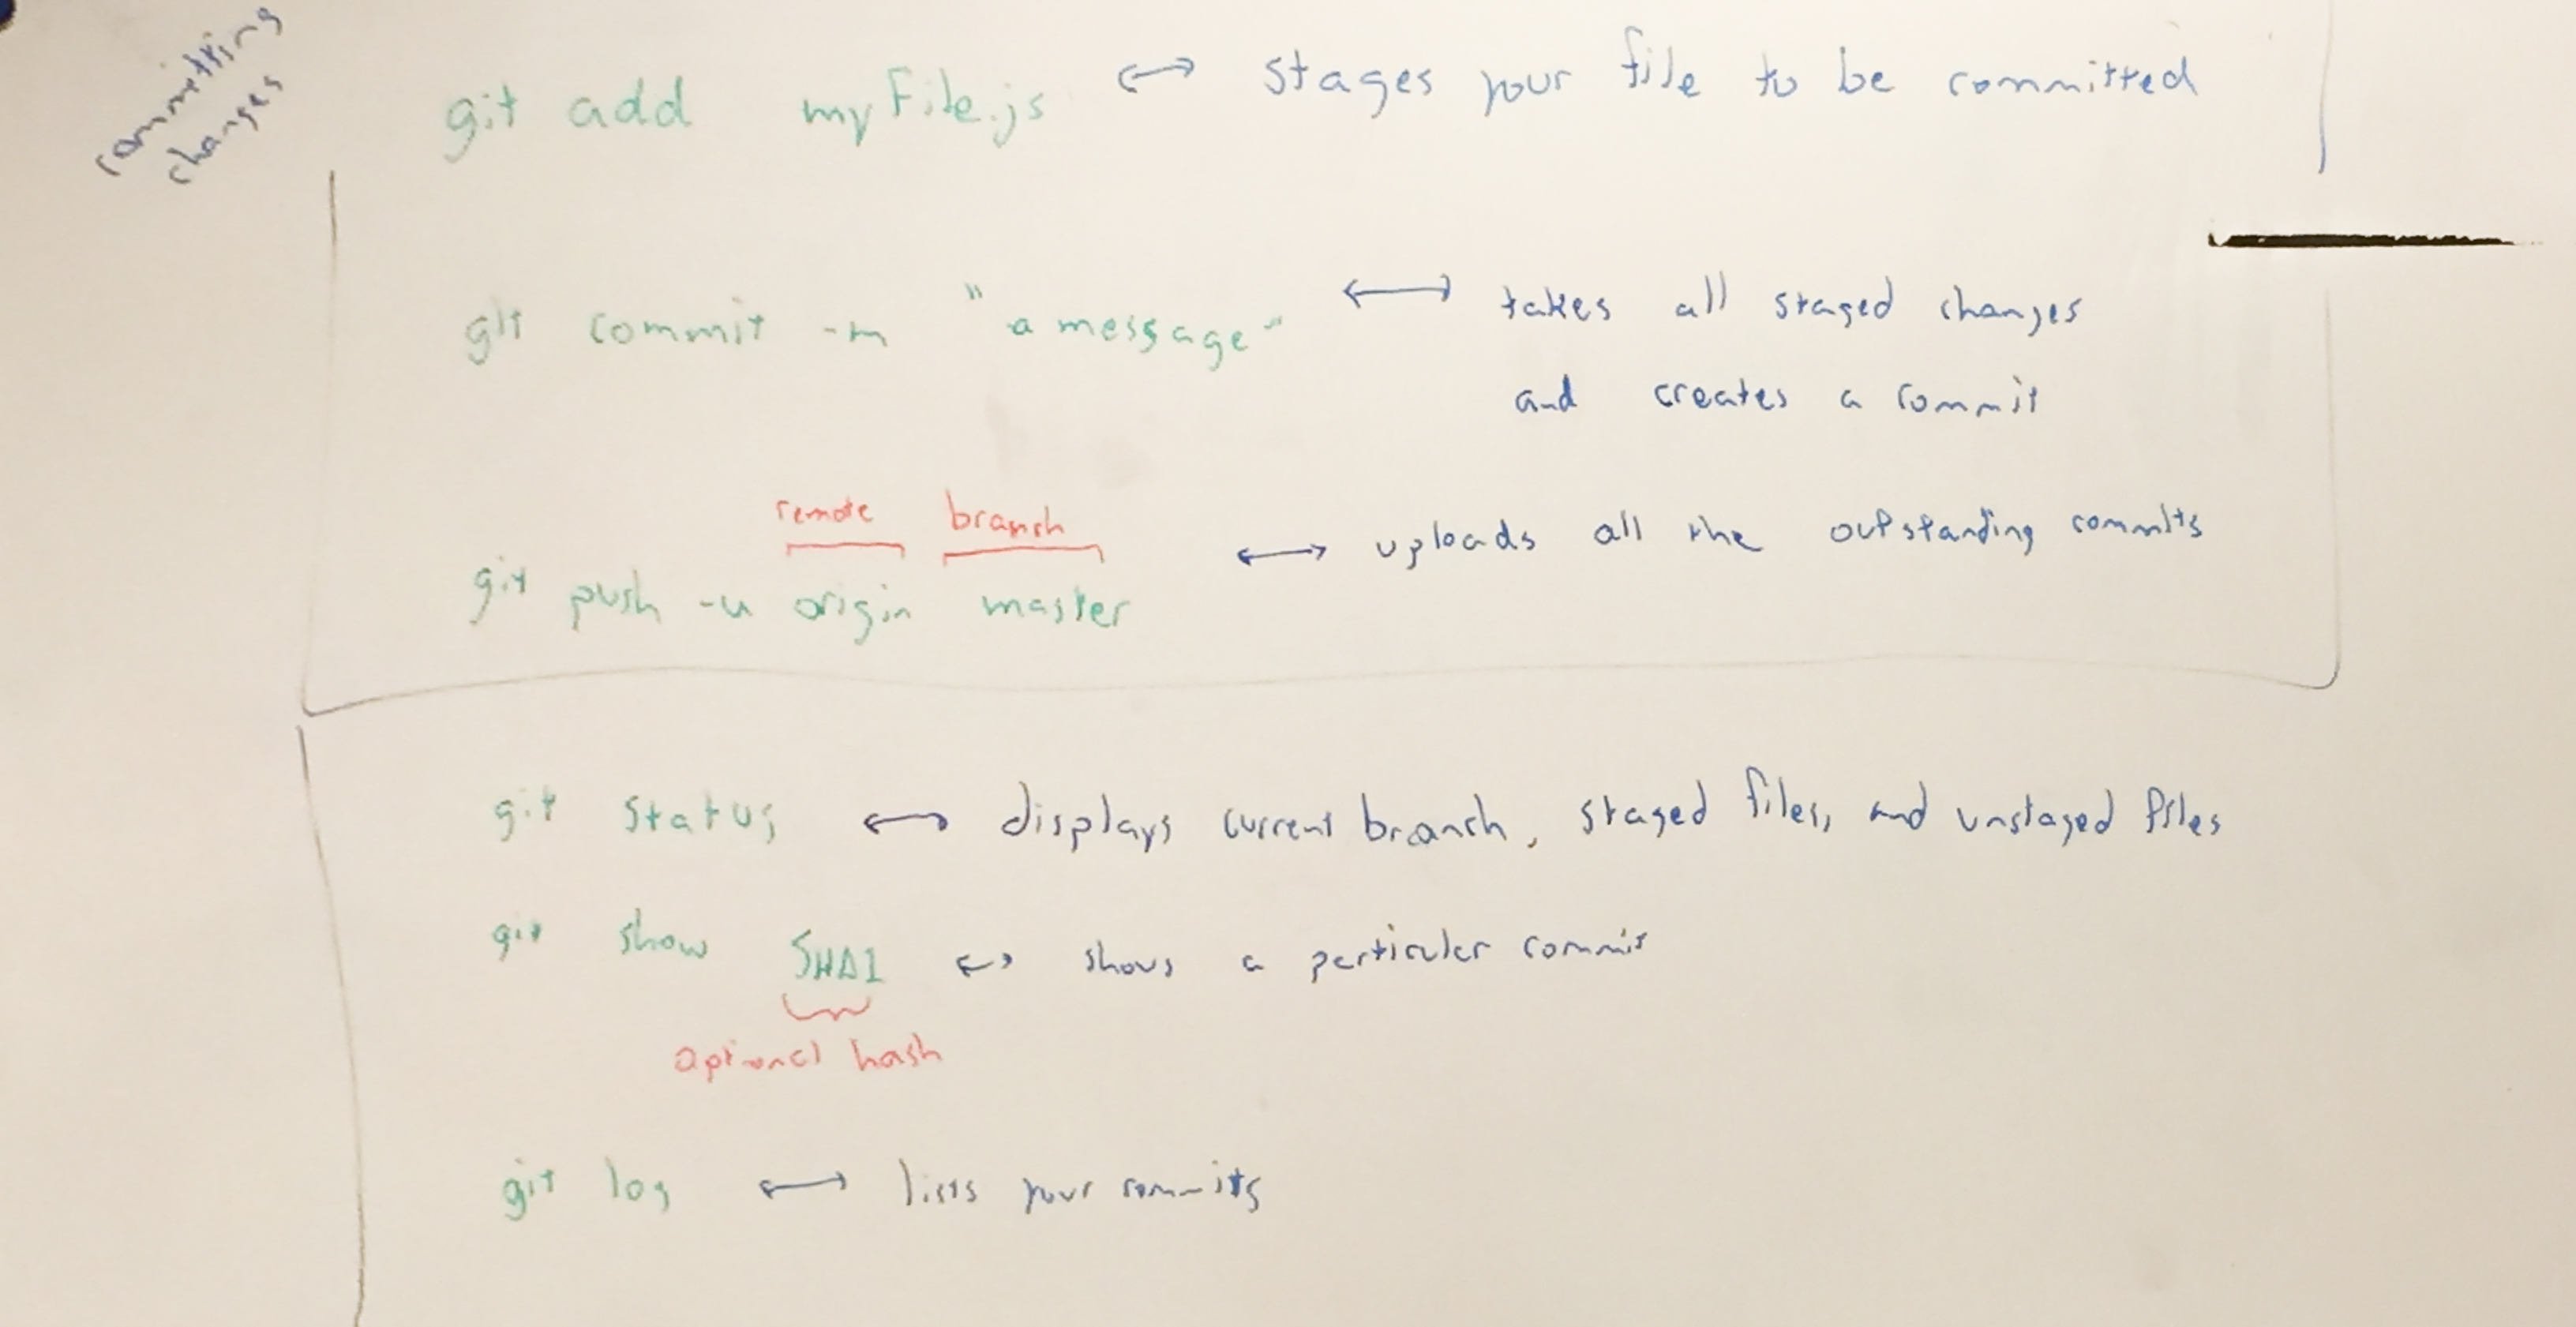 committing
changes
git add myFile.js ↔ stages your file to be committed
git commit -m "a message" ↔ takes all staged changes
and creates a commit
remote branch
git push -u origin master ↔ uploads all the outstanding commits
git status ↔ displays current branch, staged files, and unstaged files
git show SHA1 ↔ shows a particular commit
optional hash
git log ↔ lists your commits